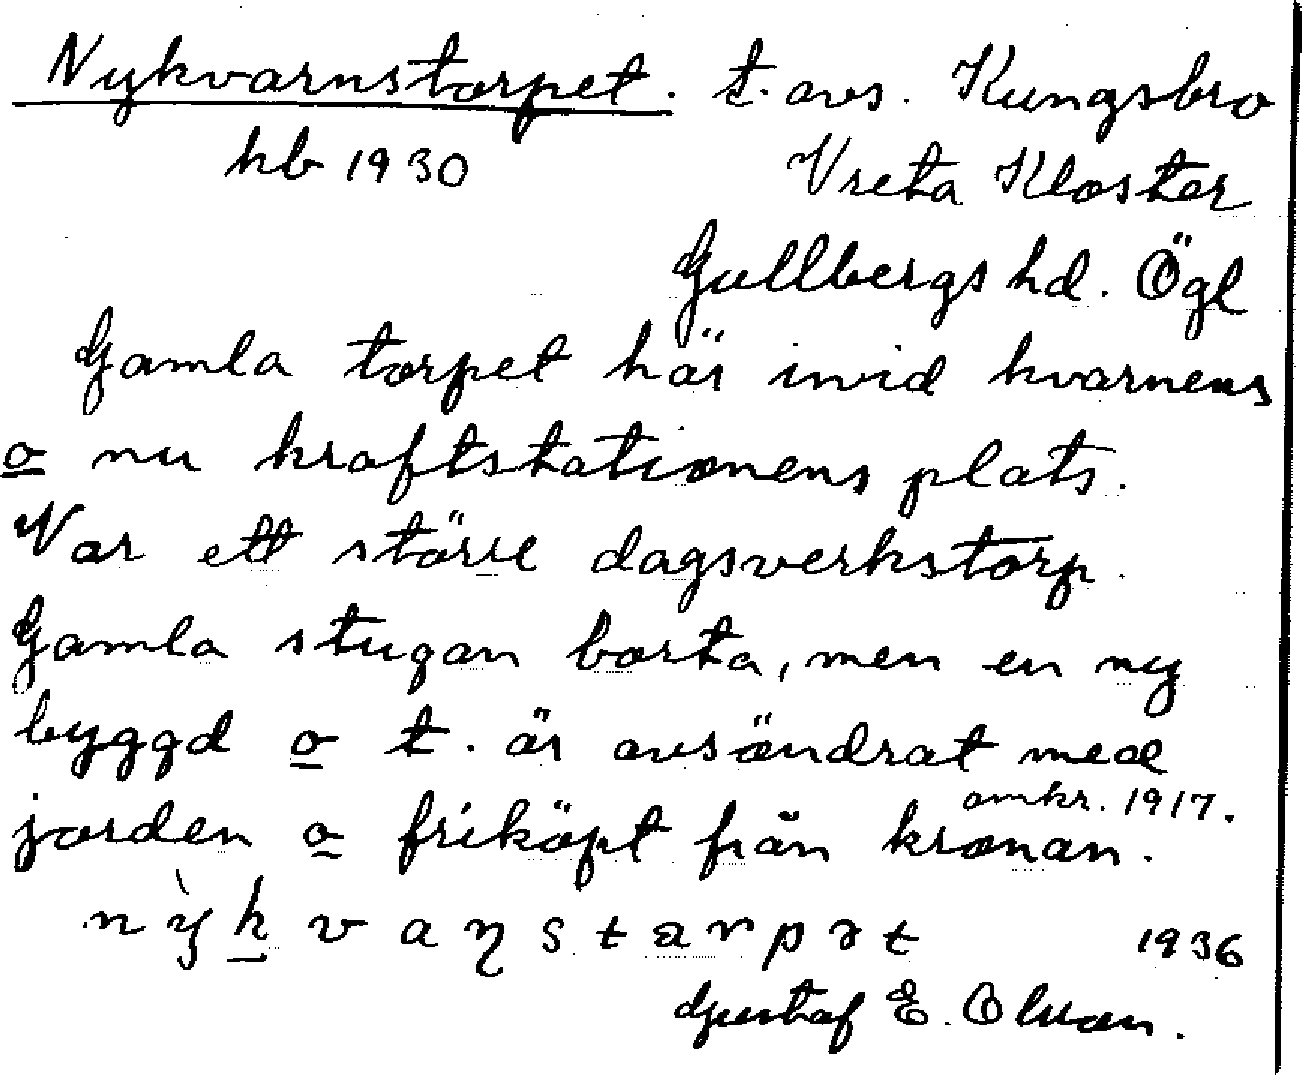 Nykvarnstorpet. t. avs. Kungsbro
hb 1930 Vreta Kloster
Gullbergs hd. Ögl
Gamla torpet här invid kvarnens
o nu kraftstationens plats.
Var ett större dagsverkstorp.
Gamla stugan borta, men en ny
byggd o t. är avsöndrat med
jorden o friköpt från kronan. omkr. 1917.
1936
Gustaf E. Olsson.